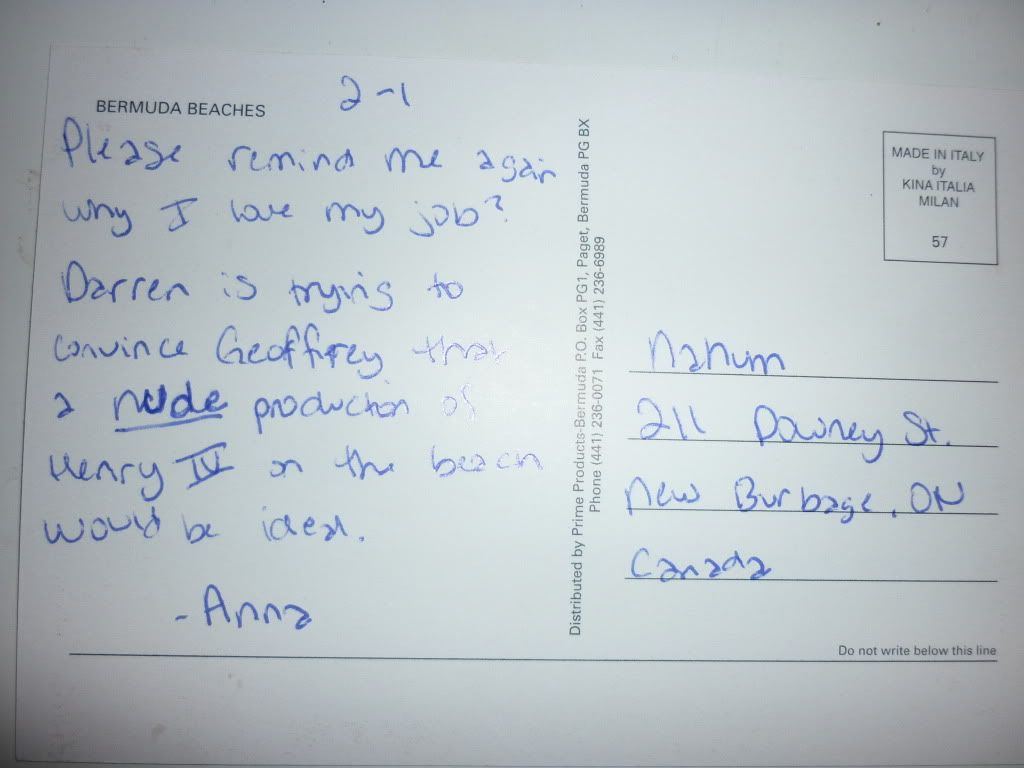 BERMUDA BEACHES
2-1
Please remind me again
why I love my job?
Darren is trying to
convince Geoffrey that
a nude production of
Henry IV on the beach
would be ideal.
-Anna
Distributed by Prime Products-Bermuda P.O. Box PG1, Paget, Bermuda PG BX
Phone (441) 236-0071 Fax (441) 236-6989
MADE IN ITALY
by
KINA ITALIA
MILAN
57
Nahum
211 Downey St.
New Burbage, ON
Canada
Do not write below this line